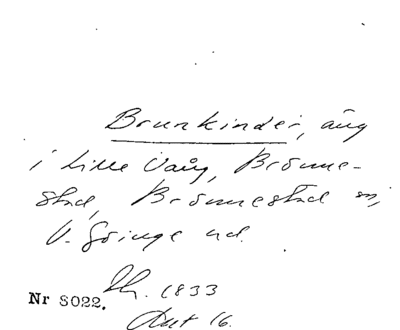 Brunkinder, äng
i Lille Vång, Brönne-
stad, Brönnestad sn,
V. Göinge hd.
Nr 8022. Lh. 1833
Akt 16.